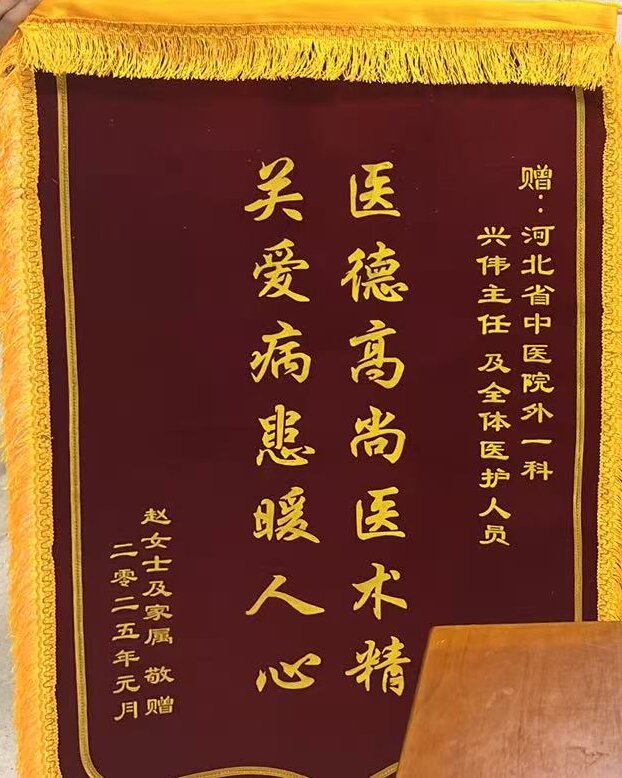 赠：河北省中医院外一科
兴伟主任 及全体医护人员
医德高尚医术精
关爱病患暖人心
赵女士及家属 敬赠
二零二五年元月